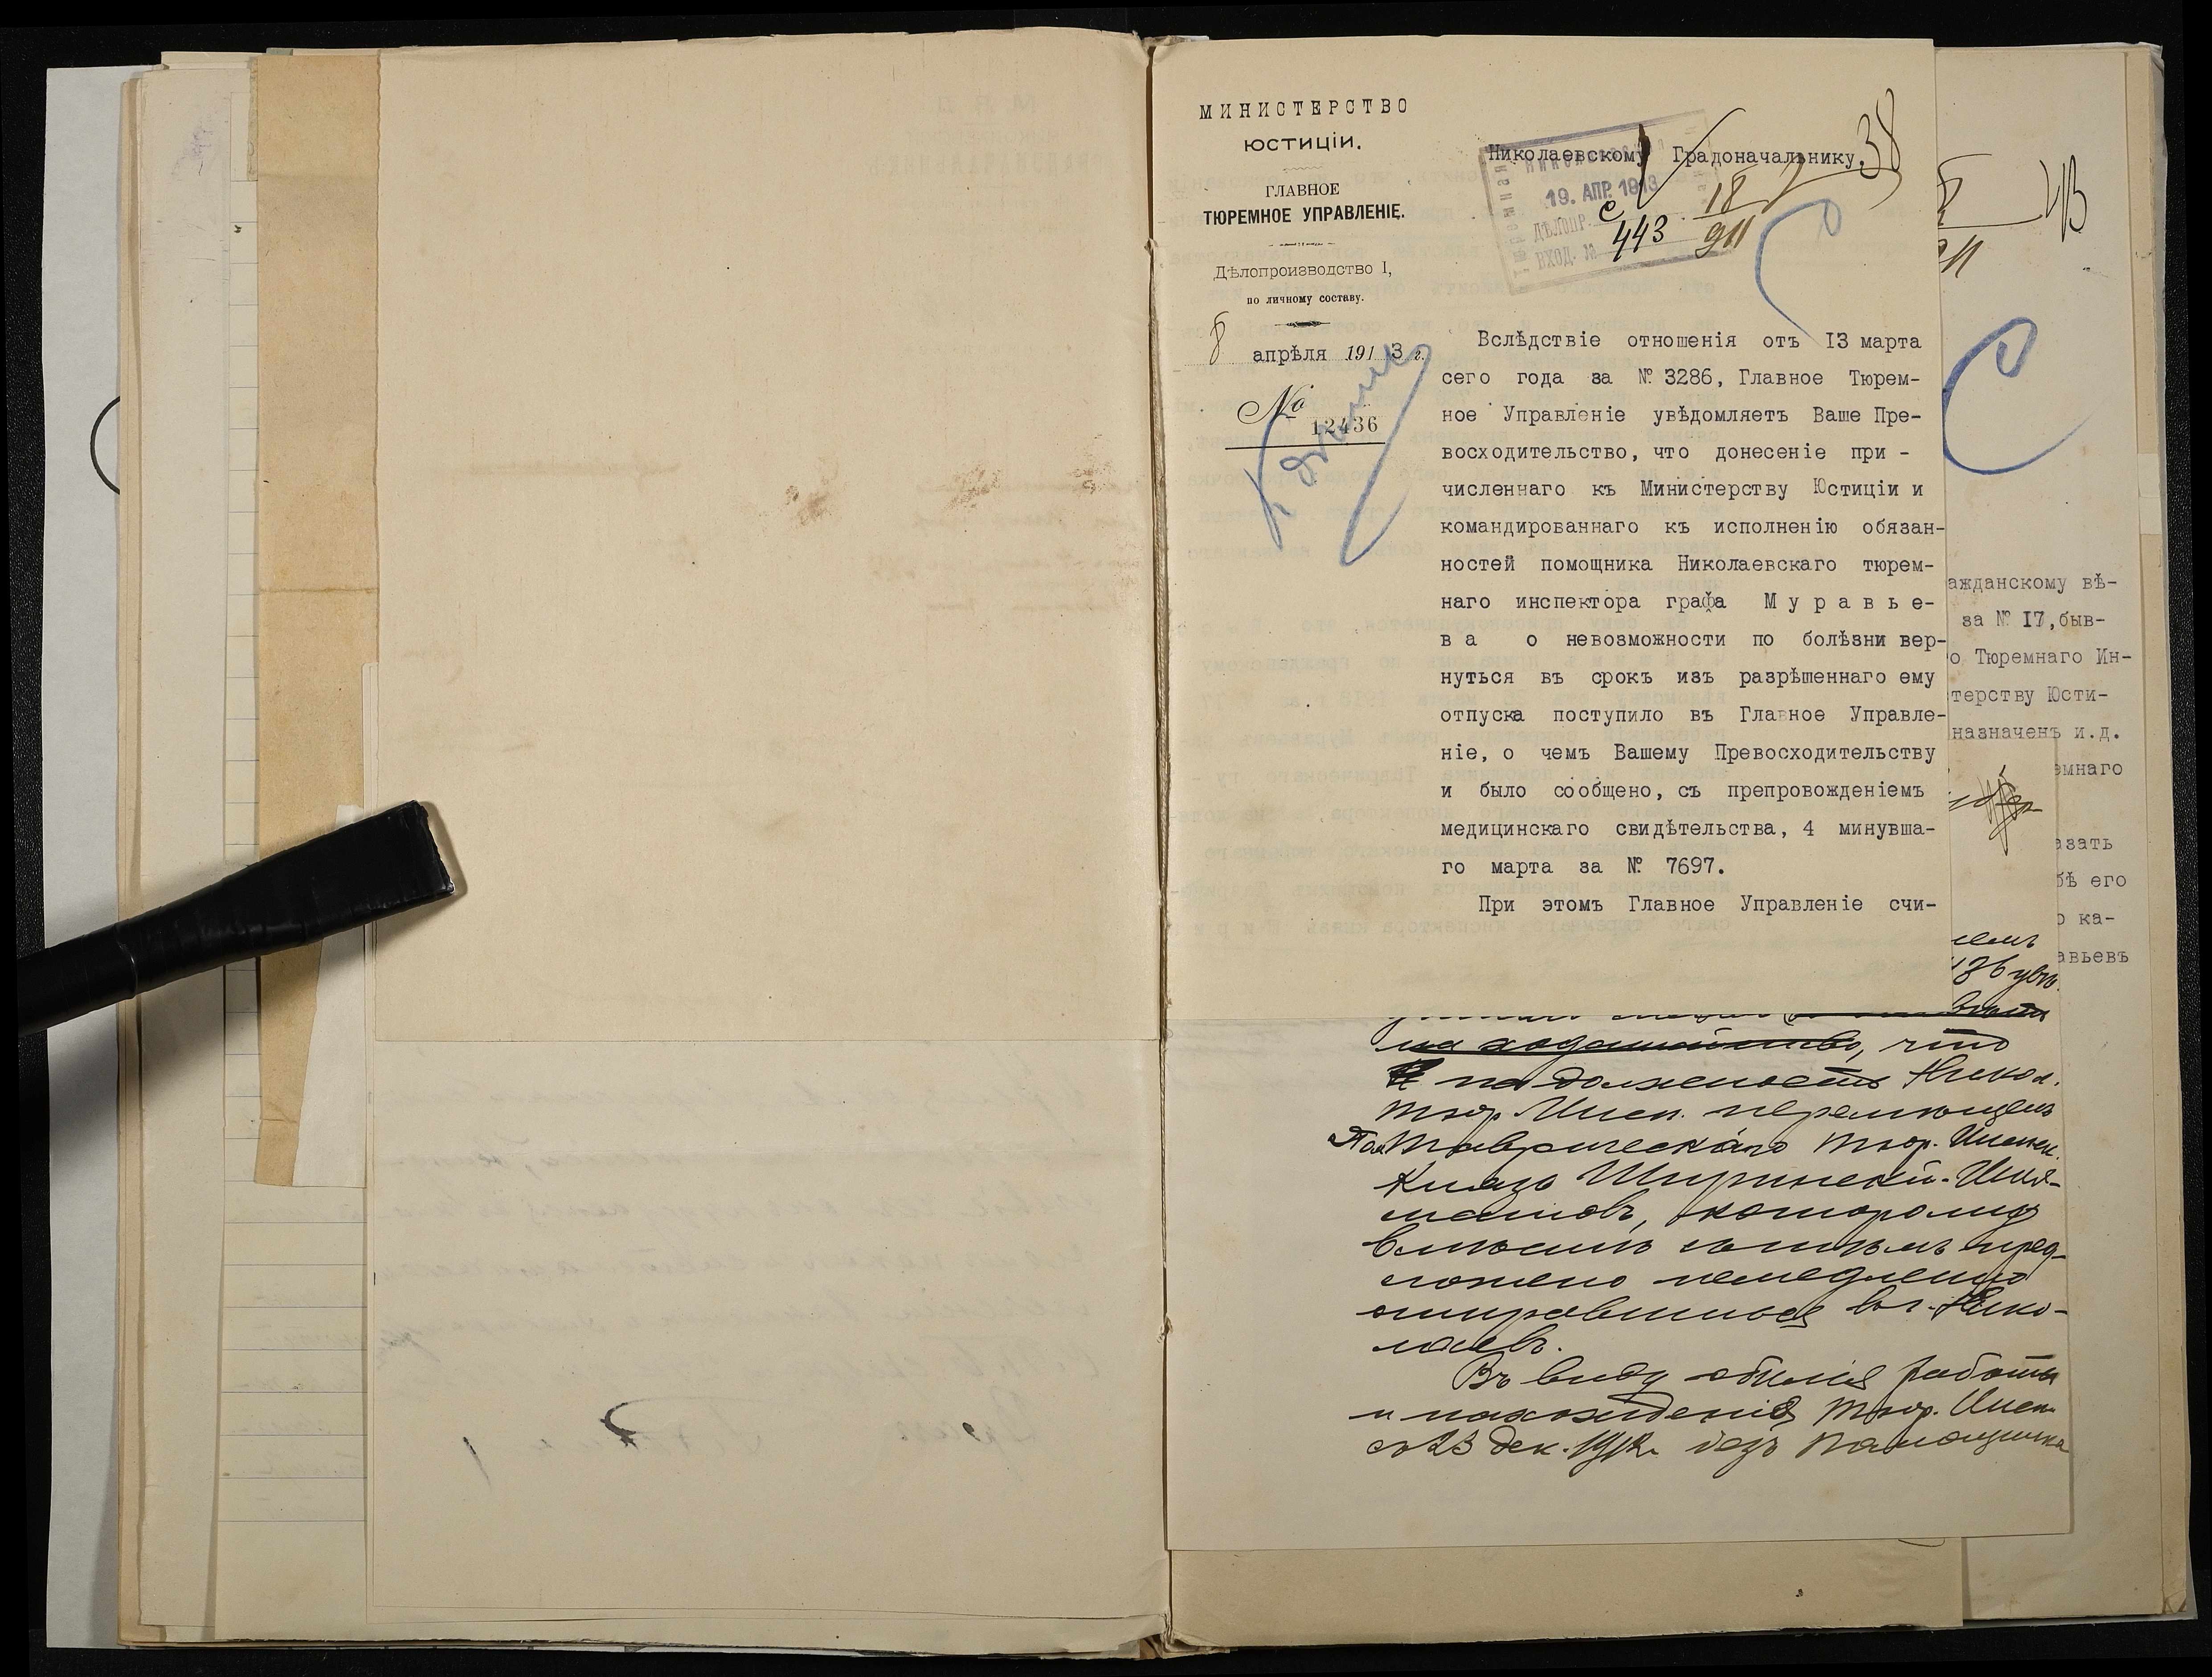 МИНИСТЕРСТВО
ЮСТИЦІИ.
ГЛАВНОЕ
ТЮРЕМНОЕ УПРАВЛЕНІЕ.
Дѣлопроизводство I,
по личному составу.
8 апрѣля 1913 г.
№ 12436
Николаевскому Градоначальнику.
38
19. АПР. 1913
ДѢЛОПР. с 18
ВХОД. № 443 911
Вслѣдствіе отношенія отъ 13 марта
сего года за № 3286, Главное Тюрем-
ное Управленіе увѣдомляетъ Ваше Пре-
восходительство, что донесеніе при-
численнаго къ Министерству Юстиціи и
командированнаго къ исполненію обязан-
ностей помощника Николаевскаго тюрем-
наго инспектора графа Муравье-
ва о невозможности по болѣзни вер-
нуться въ срокъ изъ разрѣшеннаго ему
отпуска поступило въ Главное Управле-
ніе, о чемъ Вашему Превосходительству
и было сообщено, съ препровожденіемъ
медицинскаго свидѣтельства, 4 минувша-
го марта за № 7697.
При этомъ Главное Управленіе счи-
на ходатайство, что
на должность Никол.
тюр. Инсп. перемѣщенъ
Таврическаго тюр. Инспек.
Князь Ширинскій-Ших-
матовъ, которому
вмѣстѣ съ симъ пред-
ложено немедленно
отправиться въ г. Нико-
лаевъ.
Въ виду обилія работы
и нахожденія тюр. Инсп.
съ 23 дек. 1912 г. безъ помощника
43
911
ажданскому вѣ-
за № 17, быв-
о Тюремнаго Ин-
терству Юсти-
назначенъ и.д.
емнаго
азать
бѣ его
о ка-
авьевъ